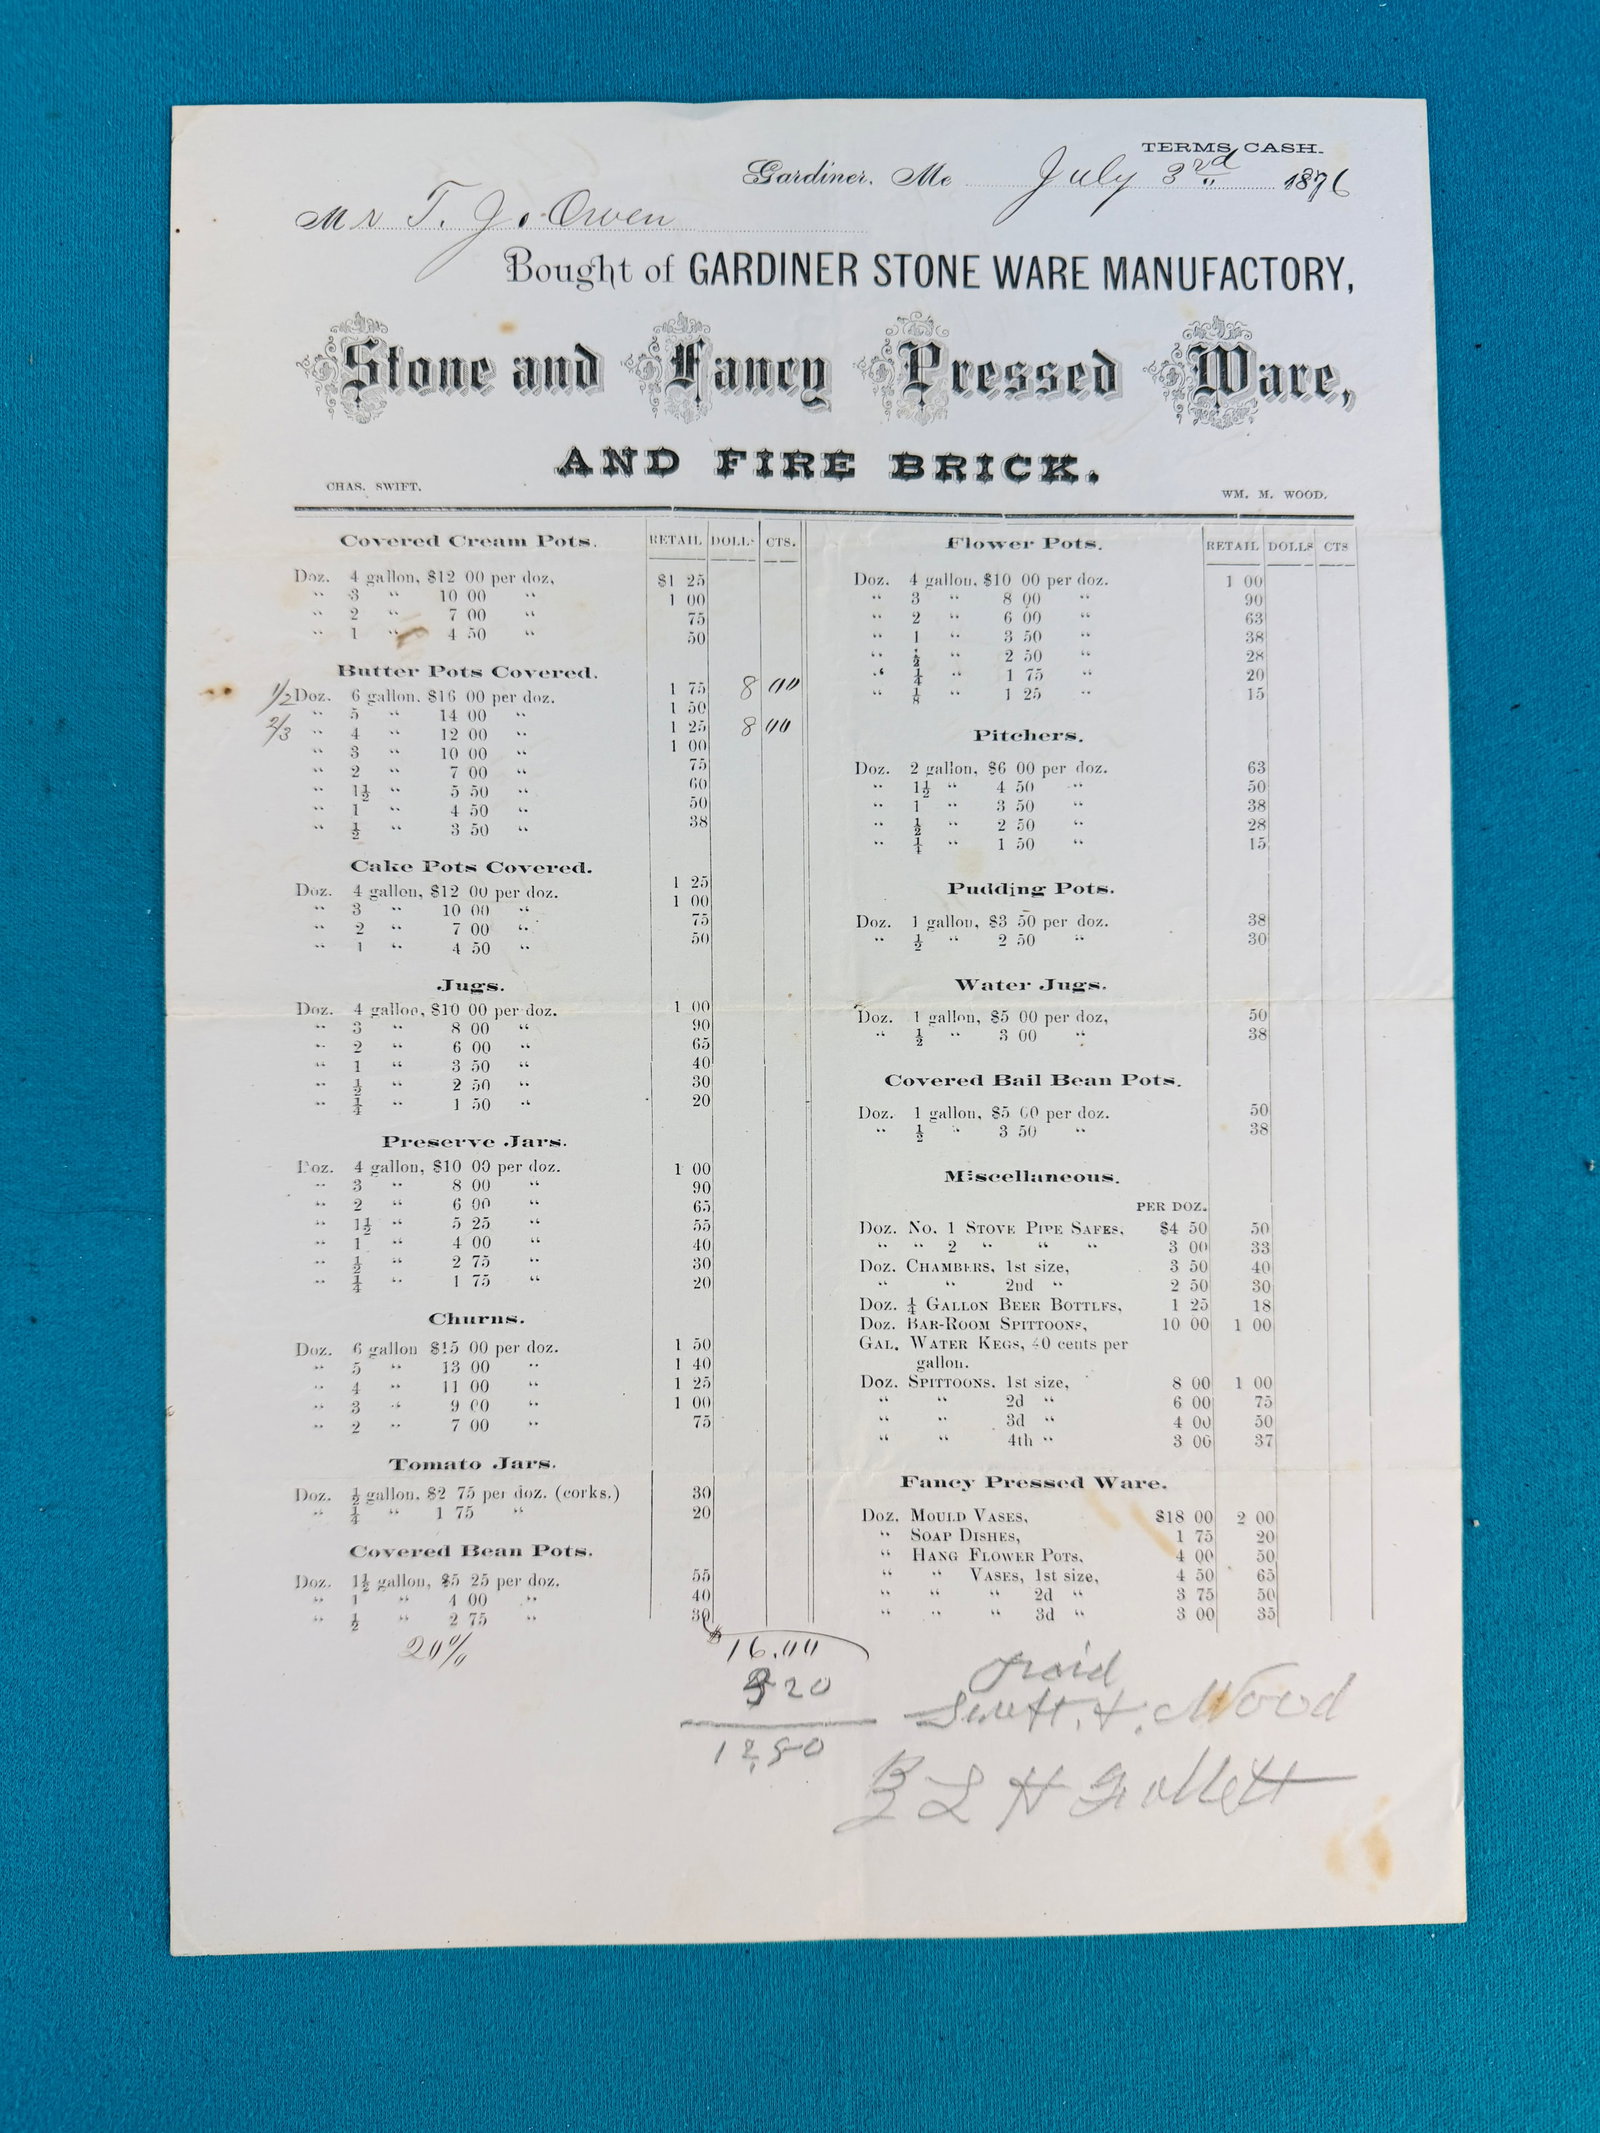 TERMS CASH.
Gardiner, Me July 3rd 1876
Mr T. J. Owen
Bought of GARDINER STONE WARE MANUFACTORY,
Stone and Fancy Pressed Ware,
AND FIRE BRICK.
CHAS. SWIFT. WM. M. WOOD.
Covered Cream Pots. RETAIL DOLLS CTS.
Doz. 4 gallon, $12 00 per doz. $1 25
“ 3 “ 10 00 “ 1 00
“ 2 “ 7 00 “ 75
“ 1 “ 4 50 “ 50
Butter Pots Covered.
1/2 Doz. 6 gallon. $16 00 per doz. 1 75 8 00
“ 5 “ 14 00 “ 1 50
2/3 “ 4 “ 12 00 “ 1 25 8 00
“ 3 “ 10 00 “ 1 00
“ 2 “ 7 00 “ 75
“ 1½ “ 5 50 “ 60
“ 1 “ 4 50 “ 50
“ ½ “ 3 50 “ 38
Cake Pots Covered.
Doz. 4 gallon, $12 00 per doz. 1 25
“ 3 “ 10 00 “ 1 00
“ 2 “ 7 00 “ 75
“ 1 “ 4 50 “ 50
Jugs.
Doz. 4 gallon, $10 00 per doz. 1 00
“ 3 “ 8 00 “ 90
“ 2 “ 6 00 “ 65
“ 1 “ 3 50 “ 40
“ ½ “ 2 50 “ 30
“ ¼ “ 1 50 “ 20
Preserve Jars.
Doz. 4 gallon, $10 00 per doz. 1 00
“ 3 “ 8 00 “ 90
“ 2 “ 6 00 “ 65
“ 1½ “ 5 25 “ 55
“ 1 “ 4 00 “ 40
“ ½ “ 2 75 “ 30
“ ¼ “ 1 75 “ 20
Churns.
Doz. 6 gallon $15 00 per doz. 1 50
“ 5 “ 13 00 “ 1 40
“ 4 “ 11 00 “ 1 25
“ 3 “ 9 00 “ 1 00
“ 2 “ 7 00 “ 75
Tomato Jars.
Doz. ½ gallon. $2 75 per doz. (corks.) 30
“ ¼ “ 1 75 “ 20
Covered Bean Pots.
Doz. 1½ gallon, $5 25 per doz. 55
“ 1 “ 4 00 “ 40
“ ½ “ 2 75 “ 30
Flower Pots. RETAIL DOLLS CTS
Doz. 4 gallon, $10 00 per doz. 1 00
“ 3 “ 8 00 “ 90
“ 2 “ 6 00 “ 63
“ 1 “ 3 50 “ 38
“ ½ “ 2 50 “ 28
“ ¼ “ 1 75 “ 20
“ ⅛ “ 1 25 “ 15
Pitchers.
Doz. 2 gallon, $6 00 per doz. 63
“ 1½ “ 4 50 “ 50
“ 1 “ 3 50 “ 38
“ ½ “ 2 50 “ 28
“ ¼ “ 1 50 “ 15
Pudding Pots.
Doz. 1 gallon, $3 50 per doz. 38
“ ½ “ 2 50 “ 30
Water Jugs.
Doz. 1 gallon, $5 00 per doz, 50
“ ½ “ 3 00 “ 38
Covered Bail Bean Pots.
Doz. 1 gallon, $5 00 per doz. 50
“ ½ “ 3 50 “ 38
Miscellaneous.
PER DOZ.
Doz. No. 1 Stove Pipe Safes, $4 50 50
“ “ 2 “ “ “ 3 00 33
Doz. Chambers, 1st size, 3 50 40
“ “ 2nd “ 2 50 30
Doz. ¼ Gallon Beer Bottles, 1 25 18
Doz. Bar-Room Spittoons, 10 00 1 00
Gal. Water Kegs, 40 cents per
gallon.
Doz. Spittoons. 1st size, 8 00 1 00
“ “ 2d “ 6 00 75
“ “ 3d “ 4 00 50
“ “ 4th “ 3 00 37
Fancy Pressed Ware.
Doz. Mould Vases, $18 00 2 00
“ Soap Dishes, 1 75 20
“ Hang Flower Pots, 4 00 50
“ “ Vases, 1st size, 4 50 65
“ “ “ 2d “ 3 75 50
“ “ “ 3d “ 3 00 35
20% $16.00
3 20
12,80
Paid
Swift & Wood
L H